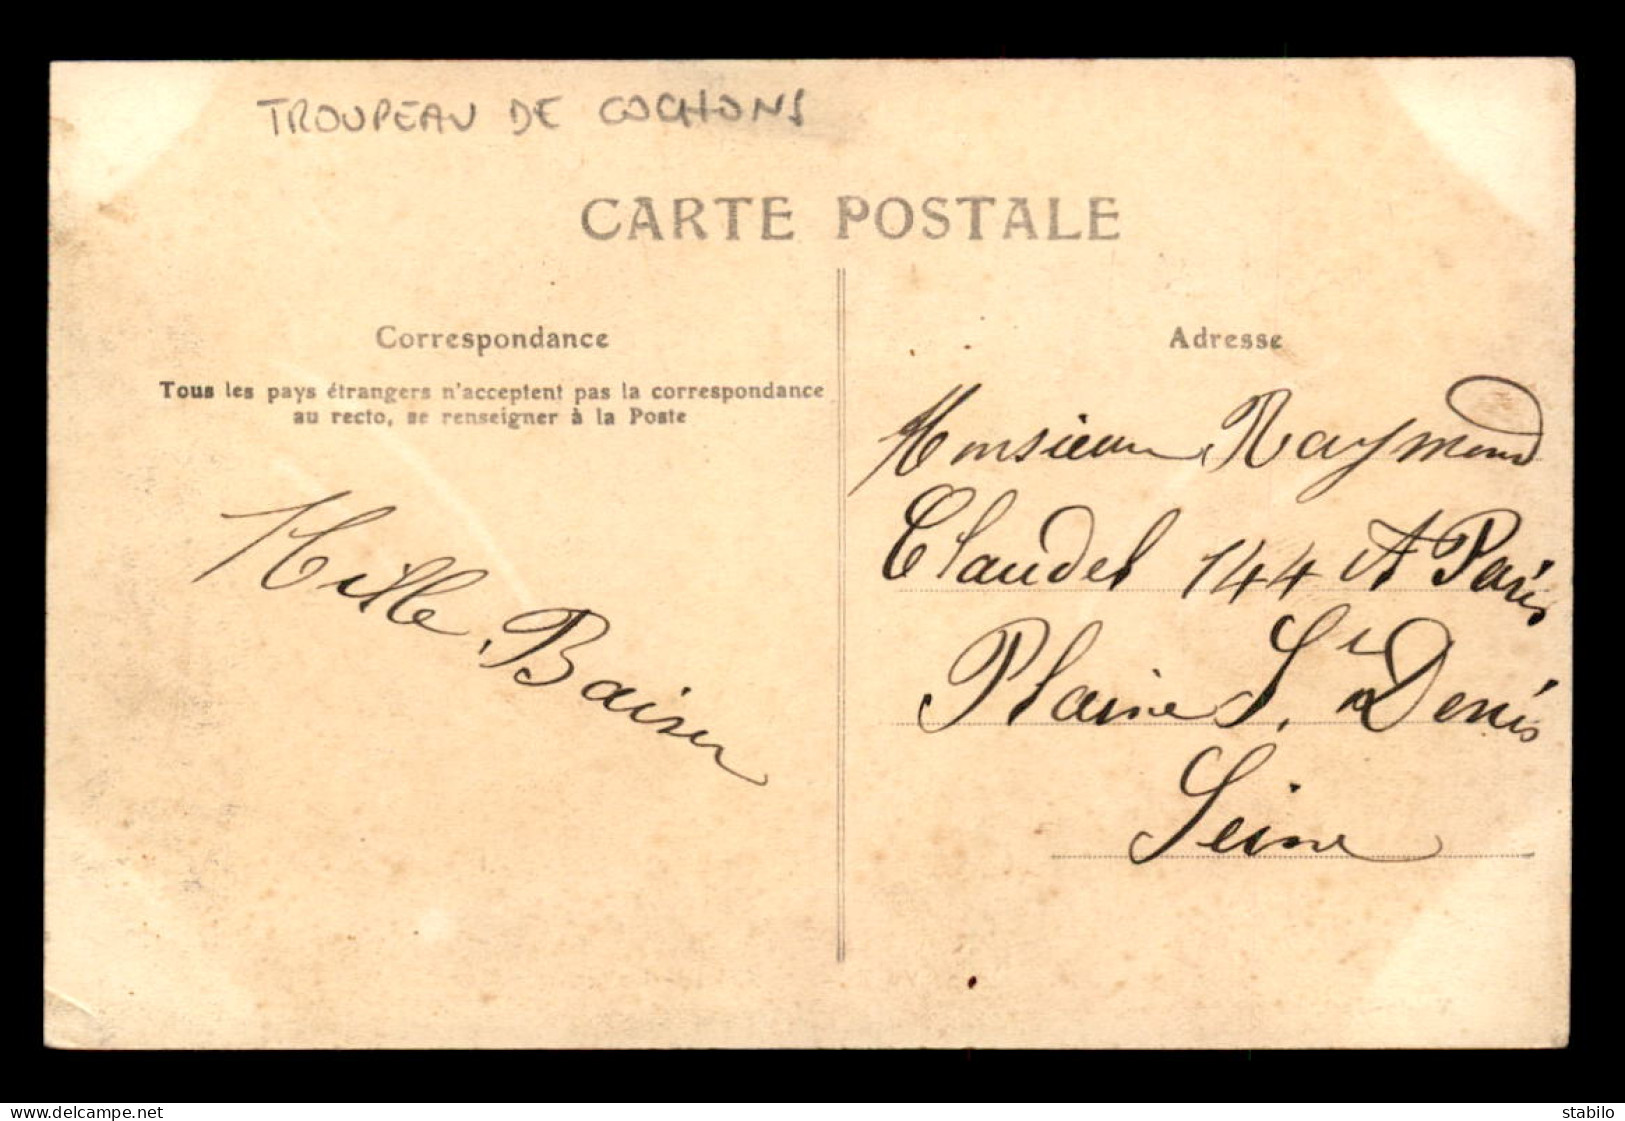 TROUPEAU DE COCHONS
CARTE POSTALE
Correspondance
Tous les pays étrangers n'acceptent pas la correspondance
au recto, se renseigner à la Poste
Mille Baiser
Adresse
Monsieur Raymond
Claudel 144 A Paris
Plaine St. Denis
Seine
www.delcampe.net
stabilo